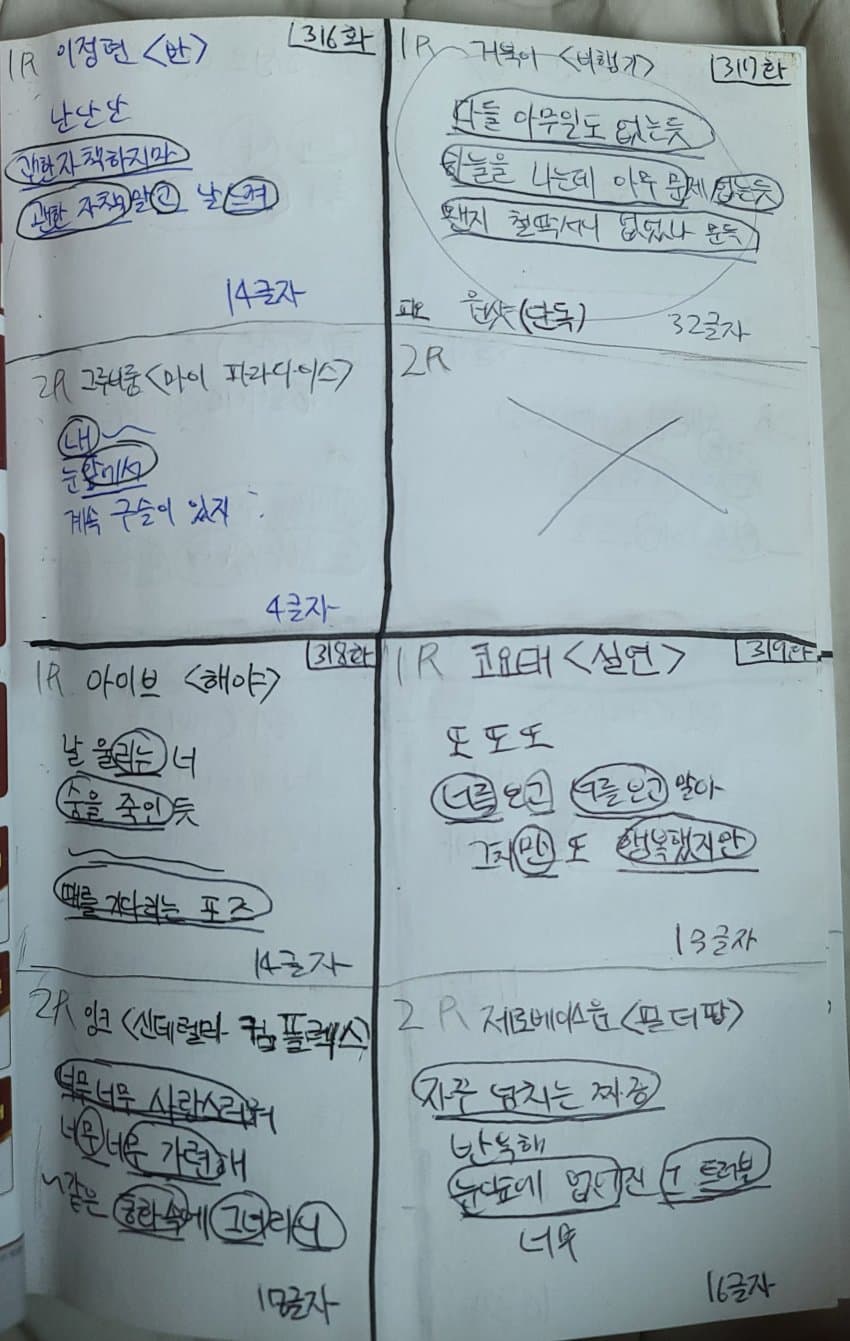 316화
1R 이정현 <반>
난난난
괜한자책하지마
괜한 자책말고 날 느껴
14글자
2R 그루비룸 <마이 파라다이스>
내
눈앞에서
계속 구슬이 있지
4글자
317화
1R 거북이 <비행기>
다들 아무일도 없는듯
하늘을 나는데 아무 문제 없는듯
왠지 철딱서니 없었나 문득
피오 원샷(단독)
32글자
2R
318화
1R 아이브 <해야>
날 울리는 너
숨을 죽인 듯
때를 기다리는 포즈
14글자
2R 잉크 <신데렐라 컴플렉스>
너무너무 사랑스러워
너무너무 가련해
니같은 동화속에 그녀라니
글자
319화
1R 코요태 <실연>
또 또 또
너를 오고 너를 오고 말아
그치만 또 행복했지만
13글자
2R 제로베이스원 <필더팝>
자꾸 넘치는 짜증
반복해
눈앞에 없어진 트러블
너무
16글자